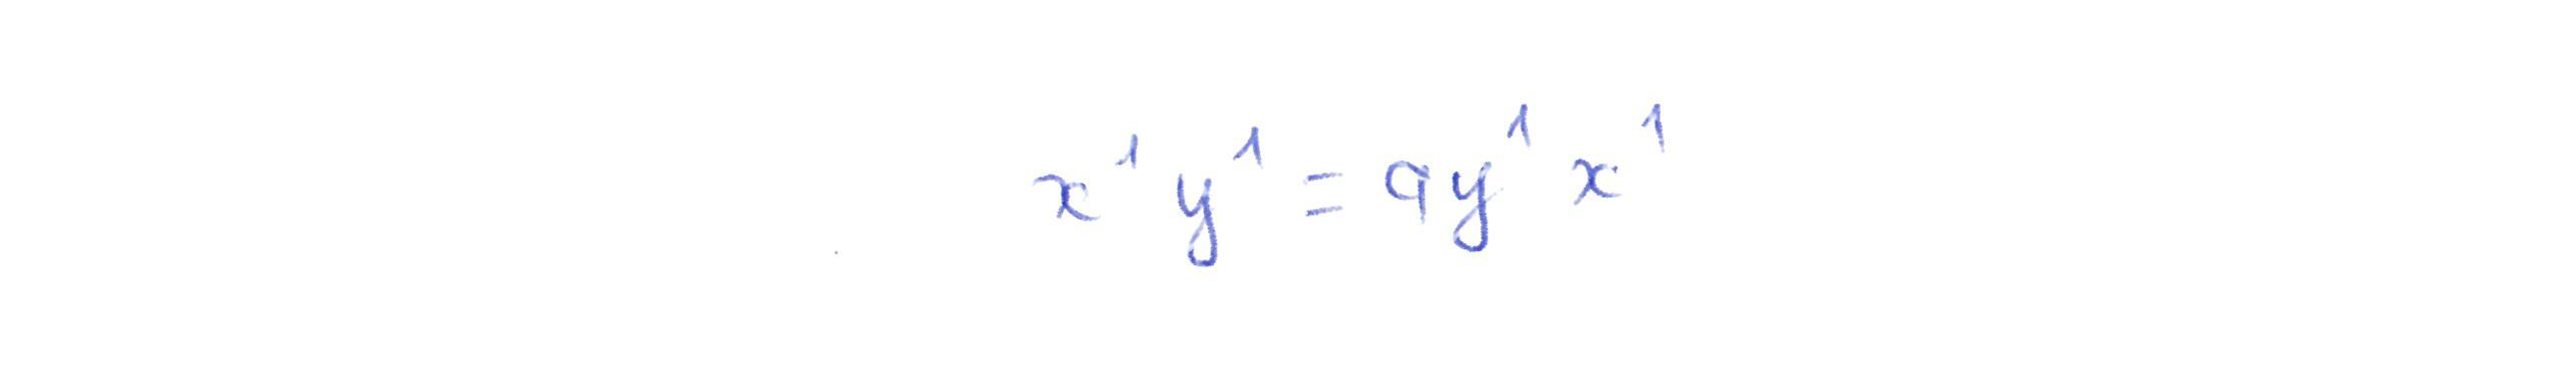 x¹ y¹ = qy¹ x¹